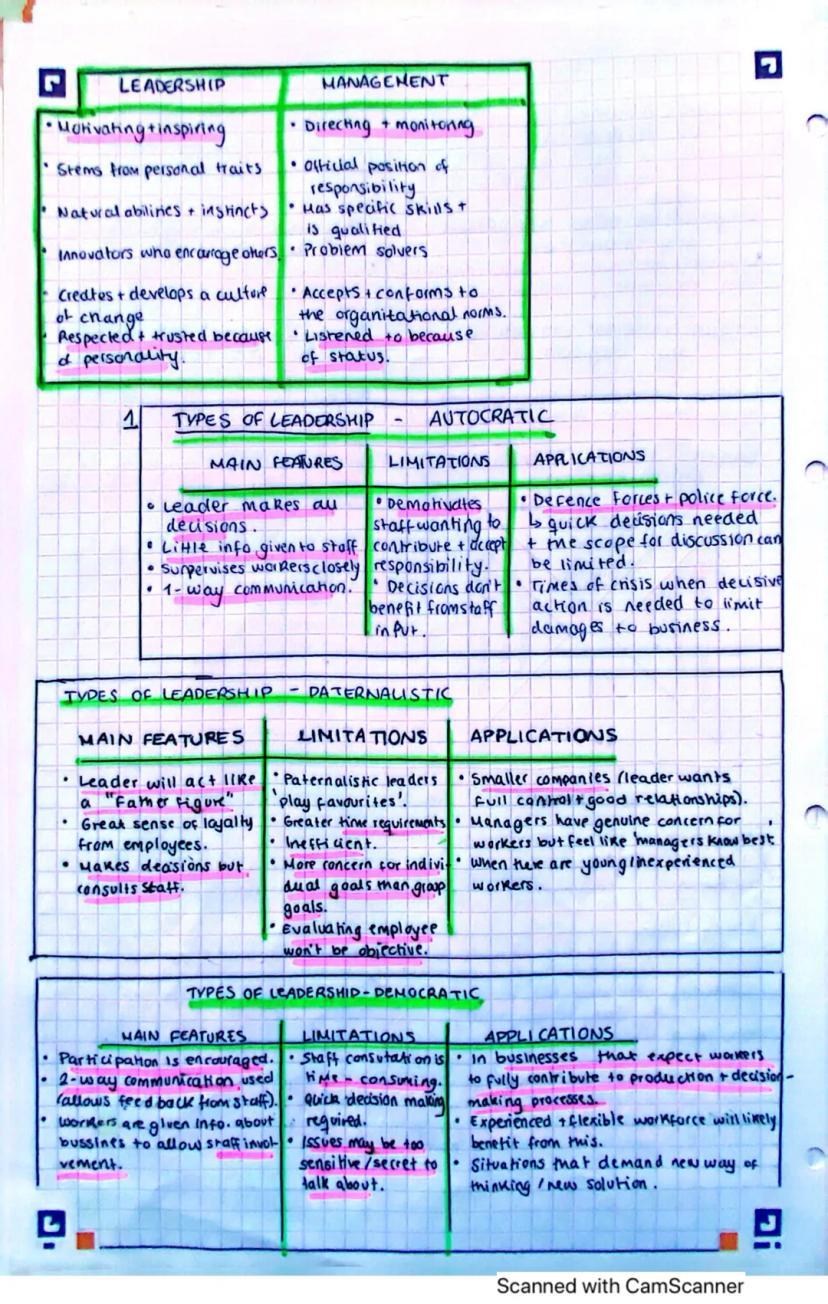 LEADERSHIP
MANAGEMENT
• Motivating + inspiring
• Stems from personal traits
• Natural abilities + instincts
• Innovators who encourage others.
• Creates + develops a culture
of change
• Respected + trusted because
of personality.
• Directing + monitoring
• Official position of
responsibility
• Has specific skills +
is qualified
• Problem solvers
• Accepts + conforms to
the organitational norms.
• Listened to because
of status.
1
TYPES OF LEADERSHIP - AUTOCRATIC
MAIN FEATURES
• Leader makes all
decisions.
• Little info given to staff
• Supervises workers closely
• 1-way communication.
LIMITATIONS
• Demotivates
staff wanting to
contribute + accept
responsibility.
• Decisions don't
benefit from staff
input.
APPLICATIONS
• Defence forces + police force.
↳ quick decisions needed
+ the scope for discussion can
be limited.
• Times of crisis when decisive
action is needed to limit
damages to business.
TYPES OF LEADERSHIP - PATERNALISTIC
MAIN FEATURES
• Leader will act like
a "Father figure"
• Great sense of loyalty
from employees.
• Makes decisions but
consults staff.
LIMITATIONS
• Paternalistic leaders
'play favourites'.
• Greater time requirements
• Inefficient.
• More concern for indivi-
dual goals than group
goals.
• Evaluating employee
won't be objective.
APPLICATIONS
• Smaller companies (leader wants
full control + good relationships).
• Managers have genuine concern for
workers but feel like 'managers know best
• When there are young/inexperienced
workers.
TYPES OF LEADERSHIP - DEMOCRATIC
MAIN FEATURES
• Participation is encouraged.
• 2-way communication used
(allows feedback from staff).
• Workers are given info. about
bussines to allow staff invol-
vement.
LIMITATIONS
• Staff consutation is
time-consuming.
• Quick decision making
required.
• Issues may be too
sensitive/secret to
talk about.
APPLICATIONS
• In businesses that expect workers
to fully contribute to production + decision-
making processes.
• Experienced + flexible workforce will likely
benefit from this.
• Situations that demand new way of
thinking / new solution.
Scanned with CamScanner